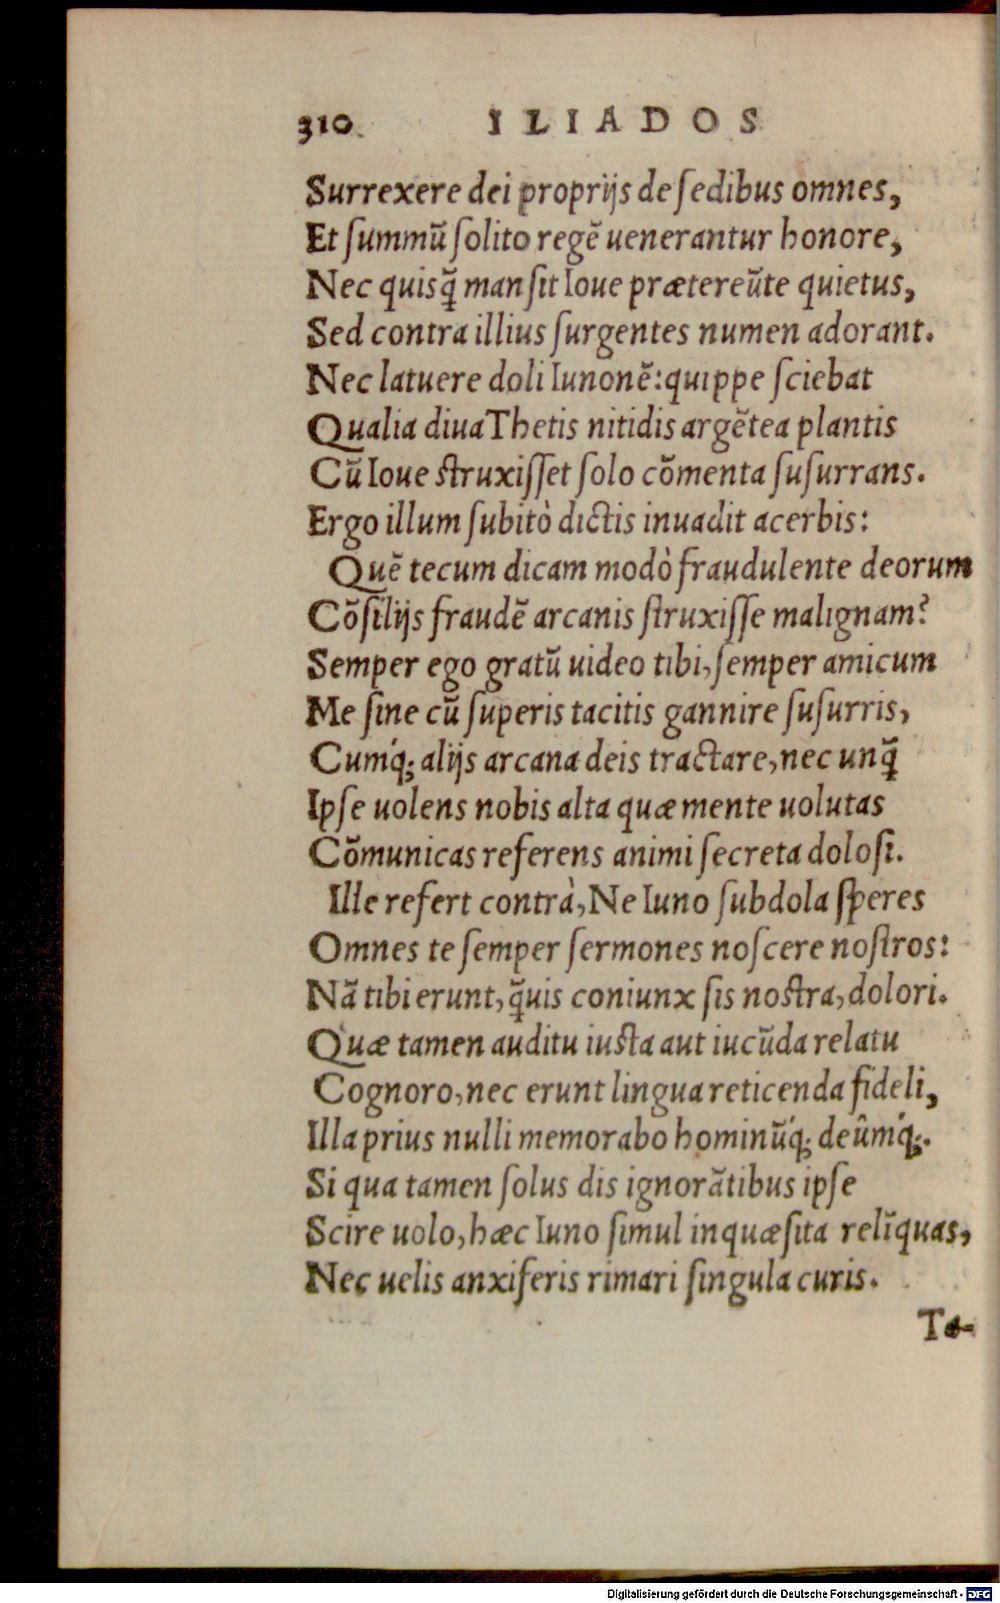 310 ILIADOS
Surrexere dei proprijs de ſedibus omnes,
Et ſummū ſolito regē uenerantur honore,
Nec quisq̄ manſit Ioue prætereūte quietus,
Sed contra illius ſurgentes numen adorant.
Nec latuere doli Iunonē: quippe ſciebat
Qualia diua Thetis nitidis argētea plantis
Cū Ioue ſtruxiſſet ſolo cōmenta ſuſurrans.
Ergo illum ſubitò dictis inuadit acerbis:
Quē tecum dicam modò fraudulente deorum
Cōſilijs fraudē arcanis ſtruxiſſe malignam?
Semper ego gratū uideo tibi, ſemper amicum
Me ſine cū ſuperis tacitis gannire ſuſurris,
Cumq́; alijs arcana deis tractare, nec unq̄
Ipſe uolens nobis alta quæ mente uolutas
Cōmunicas referens animi ſecreta doloſi.
Ille refert contrà, Ne Iuno ſubdola ſperes
Omnes te ſemper ſermones noſcere noſtros:
Nā tibi erunt, q̄uis coniunx ſis noſtra, dolori.
Quæ tamen auditu iuſta aut iucūda relatu
Cognoro, nec erunt lingua reticenda fideli,
Illa prius nulli memorabo hominūq́; deûmq́;.
Si qua tamen ſolus dis ignorātibus ipſe
Scire uolo, hæc Iuno ſimul inquæſita relīquas,
Nec uelis anxiferis rimari ſingula curis.
Te-
Digitalisierung gefördert durch die Deutsche Forschungsgemeinschaft - DFG